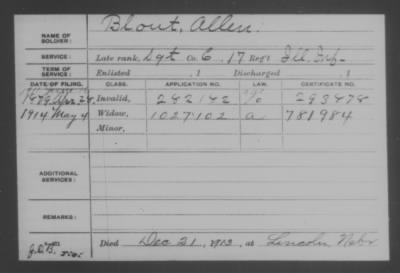 NAME OF SOLDIER: Blout, Allen.
SERVICE: Late rank, Sgt Co. C, 17 Reg't Ill. Inf.
TERM OF SERVICE: Enlisted , 1 Discharged , 1
DATE OF FILING. CLASS. APPLICATION NO. LAW. CERTIFICATE NO.
1879 Apr 24, Invalid, 282142 293878
1914 May 4 Widow, 1027102 a 781984
Minor,
ADDITIONAL SERVICES:
REMARKS:
Died Dec 21, 1913, at Lincoln Nebr